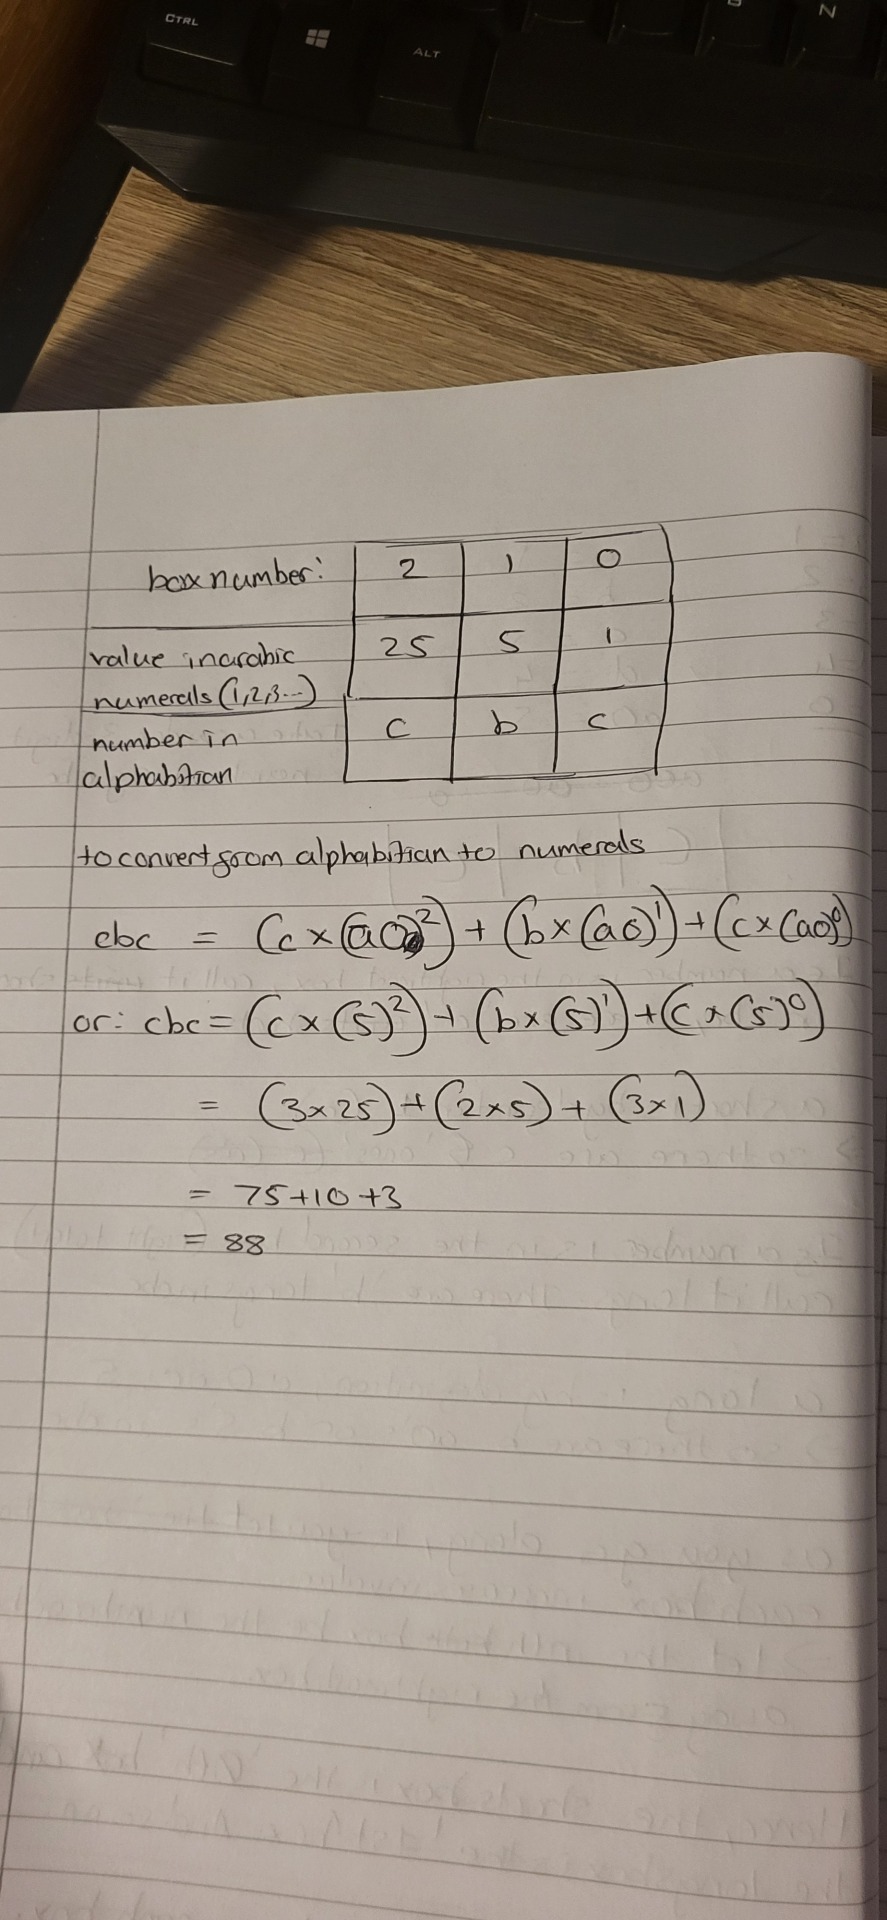 CTRL
ALT
N
box number: 2 1 0
value in arabic numerals (1,2,3...) 25 5 1
number in alphabitian c b c
to convert from alphabitian to numerals
cbc = (c × (ao)²) + (b × (ao)¹) + (c × (ao)⁰)
or: cbc = (c × (5)²) + (b × (5)¹) + (c × (5)⁰)
= (3×25) + (2×5) + (3×1)
= 75+10+3
= 88